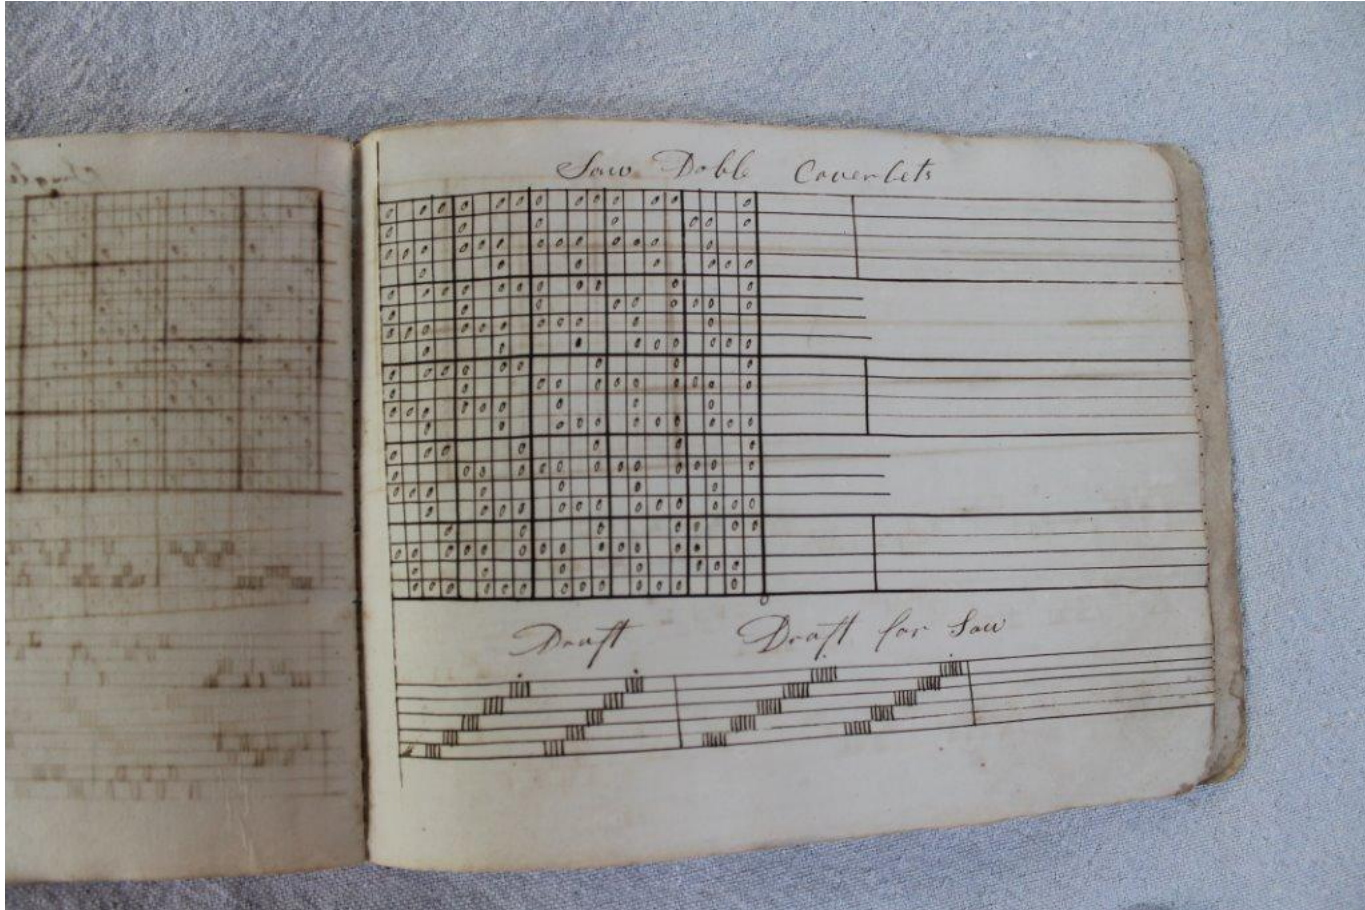 Saw Doble Coverlets
Draft Draft for Saw